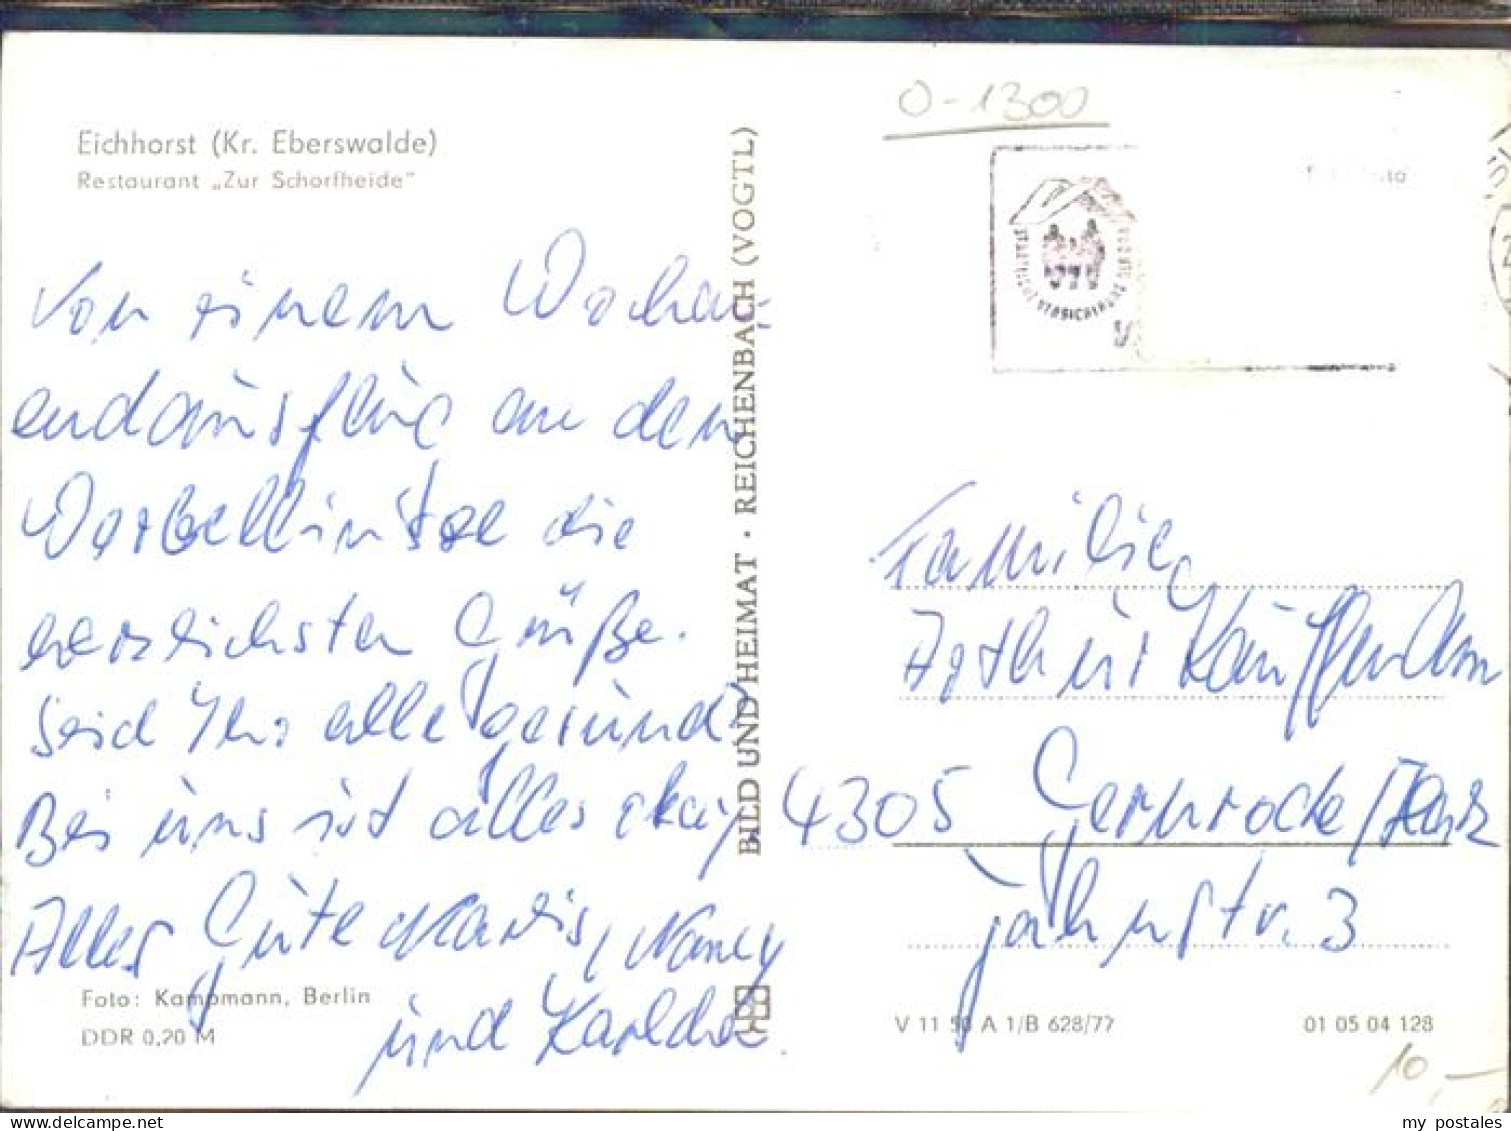 Eichhorst (Kr. Eberswalde)
Restaurant „Zur Schorfheide"
Von einem Wochen-
endausflug an den
Werbellinsee die
herzlichsten Grüße.
Seid Ihr alle gesund?
Bei uns ist alles okay
Alles Gute Nancy
und
Foto: Kampmann, Berlin
DDR 0,20 M
BILD UND HEIMAT · REICHENBACH (VOGTL)
O-1300
STAATLICHE VERSICHERUNG DER DDR
Familie
Arthur Kauffmann
4305 Gernrode/Harz
Jahnstr. 3
V 11 50 A 1/B 628/77
01 05 04 128
10,—
my postales